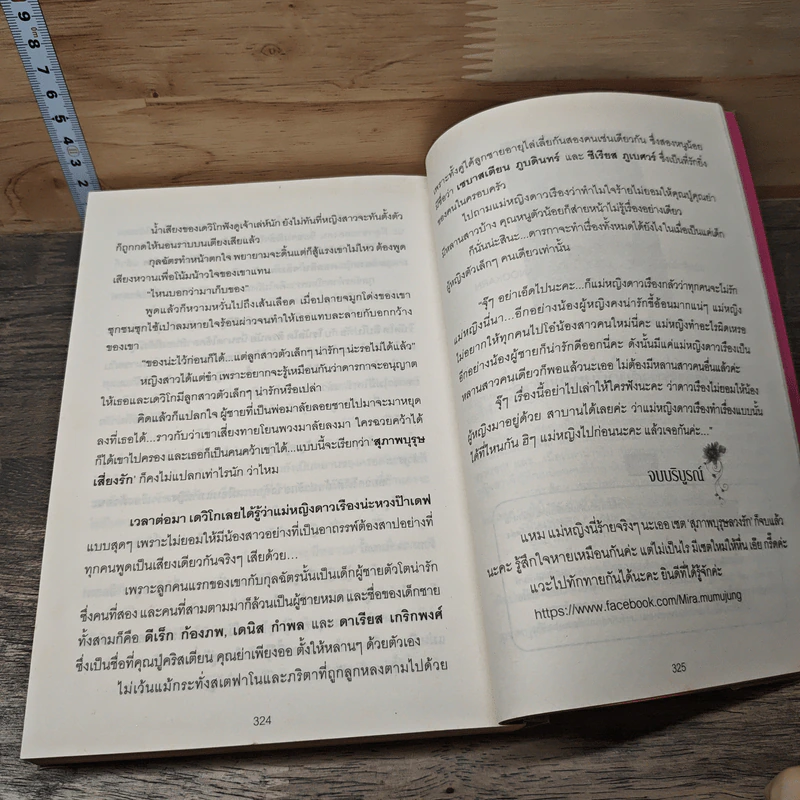 น้ำเสียงของเดวิโกฟังดูเจ้าเล่ห์นัก ยังไม่ทันที่หญิงสาวจะทันตั้งตัว
ก็ถูกกดให้นอนราบบนเตียงเสียแล้ว
กุลฉัตรทำหน้าตกใจ พยายามจะดิ้นแต่ก็สู้แรงเขาไม่ไหว ต้องพูด
เสียงหวานเพื่อโน้มน้าวใจของเขาแทน
"ไหนบอกว่ามาเก็บของ"
พูดแล้วก็หวามหวั่นไปถึงเส้นเลือด เมื่อปลายจมูกโด่งของเขา
ซุกซนซุกไซ้เป่าลมหายใจร้อนผ่าวจนทำให้เธอแทบละลายกับอกกว้าง
ของเขา
"ของน่ะไว้ก่อนก็ได้...แต่ลูกสาวตัวเล็กๆ น่ารักๆ น่ะรอไม่ได้แล้ว"
หญิงสาวได้แต่ขำ เพราะอยากจะรู้เหมือนกันว่าดารกาจะอนุญาต
ให้เธอและเดวิโกมีลูกสาวตัวเล็กๆ น่ารักหรือเปล่า
คิดแล้วก็แปลกใจ ผู้ชายที่เป็นพ่อมาลัยลอยชายไปมาจะมาหยุด
ลงที่เธอได้...ราวกับว่าเขาเสี่ยงทายโยนพวงมาลัยลงมา ใครฉวยคว้าได้
ก็ได้เขาไปครอง และเธอก็เป็นคนคว้าเขาได้...แบบนี้จะเรียกว่า 'สุภาพบุรุษ
เสี่ยงรัก' ก็คงไม่แปลกเท่าไรนัก ว่าไหม
เวลาต่อมา เดวิโกเลยได้รู้ว่าแม่หญิงดาวเรืองน่ะหวงป๊าเดฟ
แบบสุดๆ เพราะไม่ยอมให้มีน้องสาวอย่างที่เป็นอาถรรพ์ต้องสาปอย่างที่
ทุกคนพูดเป็นเสียงเดียวกันจริงๆ เสียด้วย...
เพราะลูกคนแรกของเขากับกุลฉัตรนั้นเป็นเด็กผู้ชายตัวโตน่ารัก
ซึ่งคนที่สอง และคนที่สามตามมาก็ล้วนเป็นผู้ชายหมด และชื่อของเด็กชาย
ทั้งสามก็คือ ดีเร็ก ก้องภพ, เดนิส กำพล และ ดาเรียส เกริกพงศ์
ซึ่งเป็นชื่อที่คุณปู่คริสเตียน คุณย่าเพียงออ ตั้งให้หลานๆ ด้วยตัวเอง
ไม่เว้นแม้กระทั่งสเตฟาโนและภริตาที่ถูกลูกหลงตามไปด้วย
324
เพราะทั้งคู่ได้ลูกชายอายุไล่เลี่ยกันสองคนเช่นเดียวกัน ซึ่งสองหนูน้อย
มีชื่อว่า เซบาสเตียน ภูบดินทร์ และ ซีเรียส ภูเบศวร์ ซึ่งเป็นที่รักยิ่ง
ของคนในครอบครัว
ไปถามแม่หญิงดาวเรืองว่าทำไมใจร้ายไม่ยอมให้คุณปู่คุณย่า
มีหลานสาวบ้าง คุณหนูตัวน้อยก็ส่ายหน้าไม่รู้เรื่องอย่างเดียว
ก็นั่นน่ะสินะ...ดารกาจะทำเรื่องทั้งหมดได้ยังไงในเมื่อเป็นแค่เด็ก
ผู้หญิงตัวเล็กๆ คนเดียวเท่านั้น
"จุ๊ๆ อย่าเอ็ดไปนะคะ...ก็แม่หญิงดาวเรืองกลัวว่าทุกคนจะไม่รัก
แม่หญิงนี่นา...อีกอย่างน้องผู้หญิงคงน่ารักขี้อ้อนมากแน่ๆ แม่หญิง
ไม่อยากให้ทุกคนไปโอ๋น้องสาวคนใหม่นี่คะ แม่หญิงทำอะไรผิดเหรอ
อีกอย่างน้องผู้ชายก็น่ารักดีออกนี่คะ ดังนั้นมีแค่แม่หญิงดาวเรืองเป็น
หลานสาวคนเดียวก็พอแล้วนะเออ ไม่ต้องมีหลานสาวคนอื่นแล้วค่ะ
จุ๊ๆ เรื่องนี้อย่าไปเล่าให้ใครฟังนะคะ ว่าดาวเรืองไม่ยอมให้น้อง
ผู้หญิงมาอยู่ด้วย สาบานได้เลยค่ะ ว่าแม่หญิงดาวเรืองทำเรื่องแบบนั้น
ได้ที่ไหนกัน ฮิๆ แม่หญิงไปก่อนนะคะ แล้วเจอกันค่ะ..."
จบบริบูรณ์
แหม แม่หญิงนี่ร้ายจริงๆ นะเออ เซต 'สุภาพบุรุษลวงรัก' ก็จบแล้ว
นะคะ รู้สึกใจหายเหมือนกันค่ะ แต่ไม่เป็นไร มีเซตใหม่ให้หื่น เอ๊ย กรี๊ดค่ะ
แวะไปทักทายกันได้นะคะ ยินดีที่ได้รู้จักค่ะ
https://www.facebook.com/Mira.mumujung
325
9
8
7
6
5
4
3
2